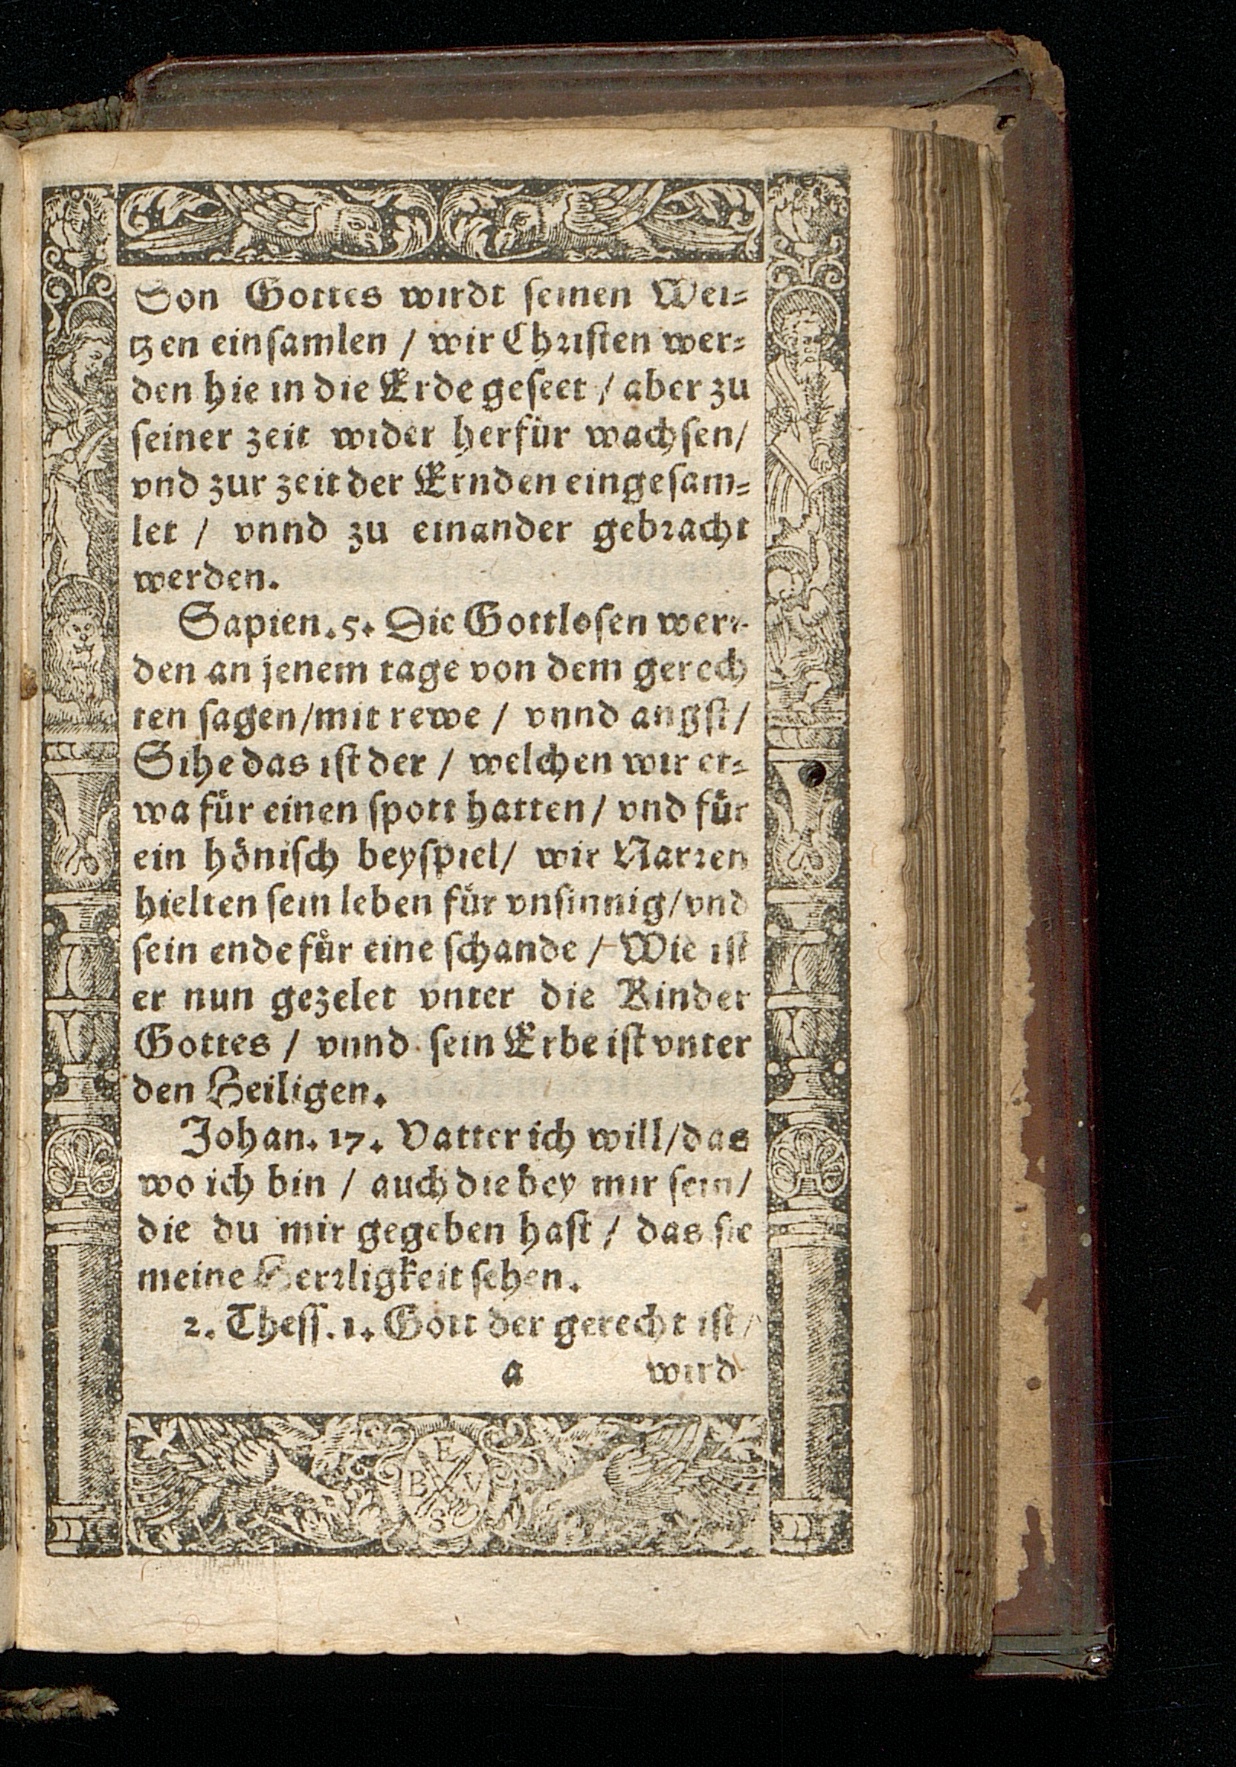 Son Gottes wirdt seinen Wei⸗
tzen einsamlen / wir Christen wer⸗
den hie in die Erde geseet / aber zu
seiner zeit wider herfür wachsen/
vnd zur zeit der Ernden eingesam⸗
let / vnnd zu einander gebracht
werden.
Sapien. 5. Die Gottlosen wer⸗
den an jenem tage von dem gerech
ten sagen/mit rewe / vnnd angst/
Sihe das ist der / welchen wir et⸗
wa für einen spott hatten / vnd für
ein hönisch beyspiel/ wir Narren
hielten sein leben für vnsinnig/vnd
sein ende für eine schande / Wie ist
er nun gezelet vnter die Kinder
Gottes / vnnd sein Erbe ist vnter
den Heiligen.
Johan. 17. Vatter ich will/das
wo ich bin / auch die bey mir sein/
die du mir gegeben hast / das sie
meine Herrligkeit sehen.
2. Thess. 1. Gott der gerecht ist/
a wird
E
B V
S